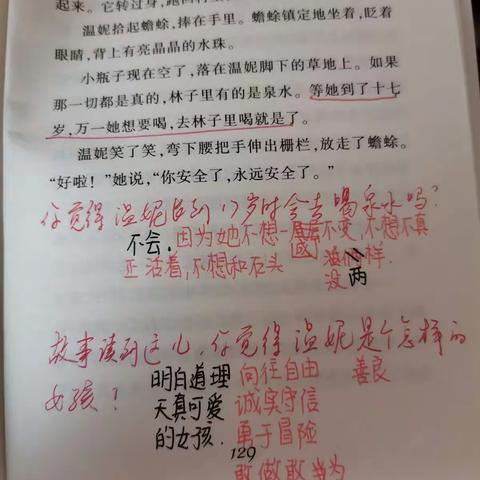 起来。它转过身,跑回树
温妮拾起蟾蜍,捧在手里。蟾蜍镇定地坐着,眨着
眼睛,背上有亮晶晶的水珠。
小瓶子现在空了,落在温妮脚下的草地上。如果
那一切都是真的,林子里有的是泉水。等她到了十七
岁,万一她想要喝,去林子里喝就是了。
温妮笑了笑,弯下腰把手伸出栅栏,放走了蟾蜍。
“好啦!”她说,“你安全了,永远安全了。”
你觉得温妮长到17岁时会去喝泉水吗?
不会. 因为她不想一层不变,不想不真
正活着,不想和石头 一样.
没两
故事读到这儿,你觉得温妮是个怎样的
女孩?
明白道理 向往自由 善良
天真可爱 诚实守信
的女孩. 勇于冒险
129
敢做敢当为